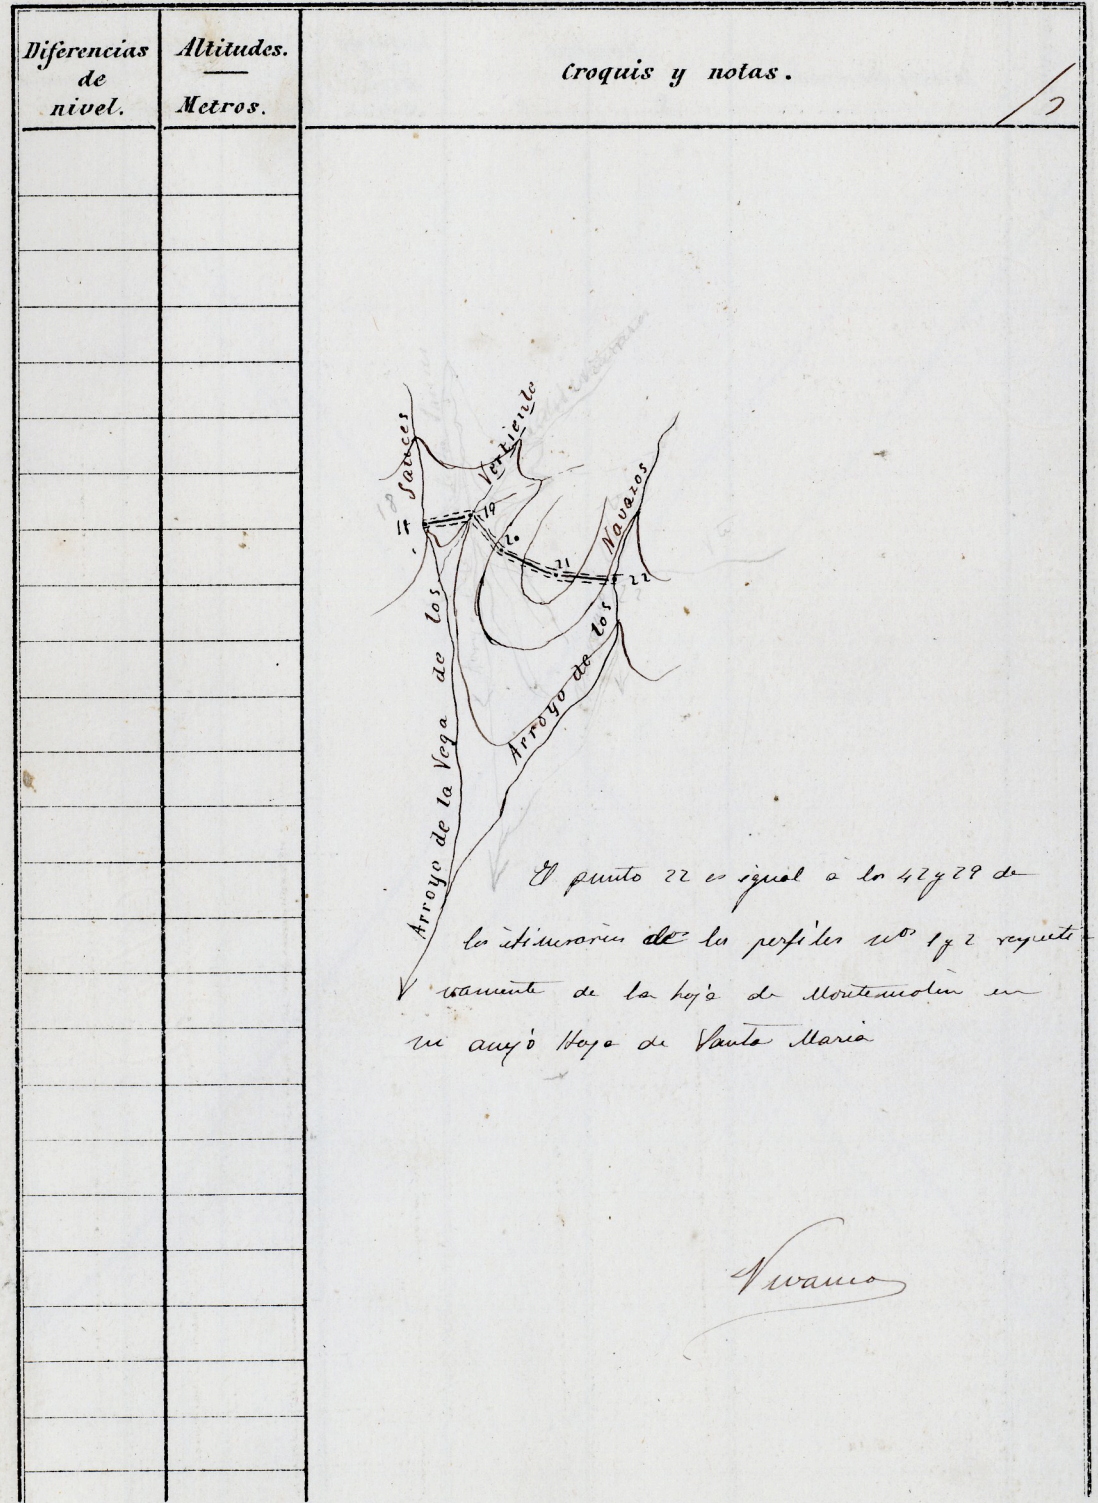 Diferencias
de
nivel.
Altitudes.
Metros.
Croquis y notas.
Arroyo de la Vega de los Sauces
Vertiente
Arroyo de los Navazos
19
20
21
22
El punto 22 es igual á los 42 y 29 de
los itinerarios de los perfiles nos 1 y 2 respecti
vamente de la hoja de Montemolin en
su anejo Hoja de Santa Maria
Vivanco